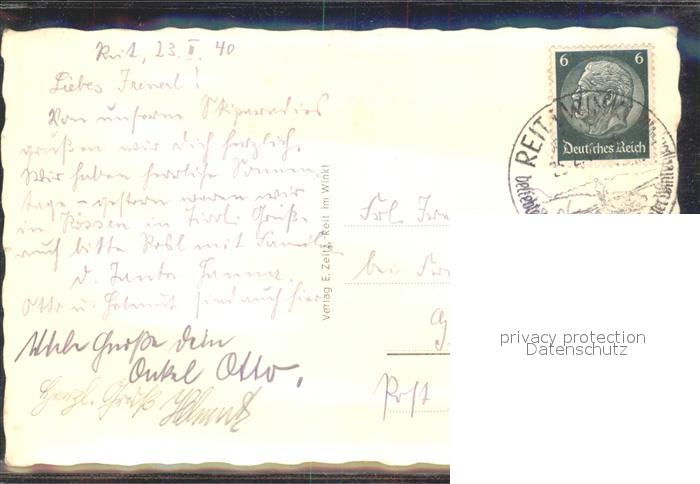 Reit, 23. II. 40
Liebes Irenerl!
Von unserm Skiparadies
grüßen wir Dich herzlich.
Wir haben herrliche Sonnen-
tage – gestern waren wir
in Kössen in Tirol. Grüße
auch bitte Rosl mit Familie
d. Tante Hanna.
Otto u. Helmut sind auch hier
Viele Grüße dein
Onkel Otto.
Herzl. Gruß Helmut
Verlag E. Zeitz, Reit im Winkl
6 6
Deutsches Reich
REIT
Frl.
bei
Post
privacy protection
Datenschutz